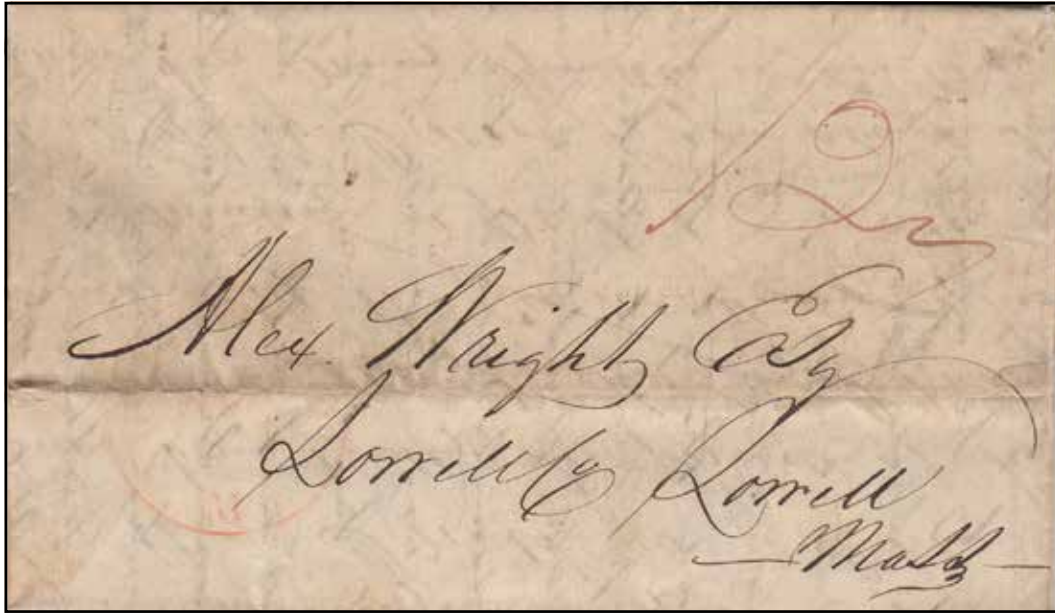 12½
Alex. Wright Esq
Lowell Co Lowell
Mass